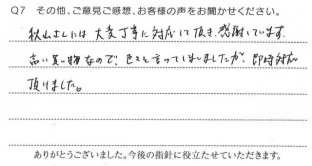 Q7 その他、ご意見ご感想、お客様の声をお聞かせください。
秋山さんには大変丁寧に対応して頂き、感謝しています。
高い買い物なので、色々と言ってしまいましたが、即時対応
頂けました。
ありがとうございました。今後の指針に役立たせていただきます。